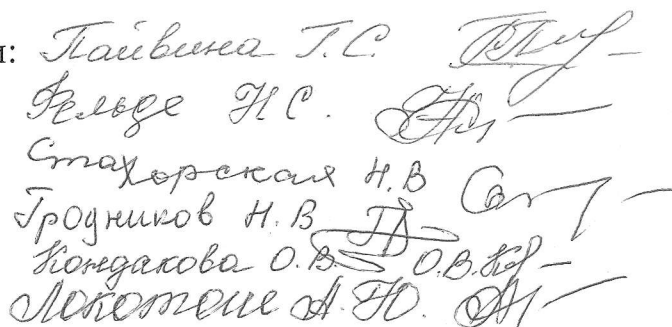 и: Пайвина Г.С.
Фельде Н.С.
Стахорская Н.В
Гродников Н.В
Кондакова О.В. О.В.
Локотош А.Ю.